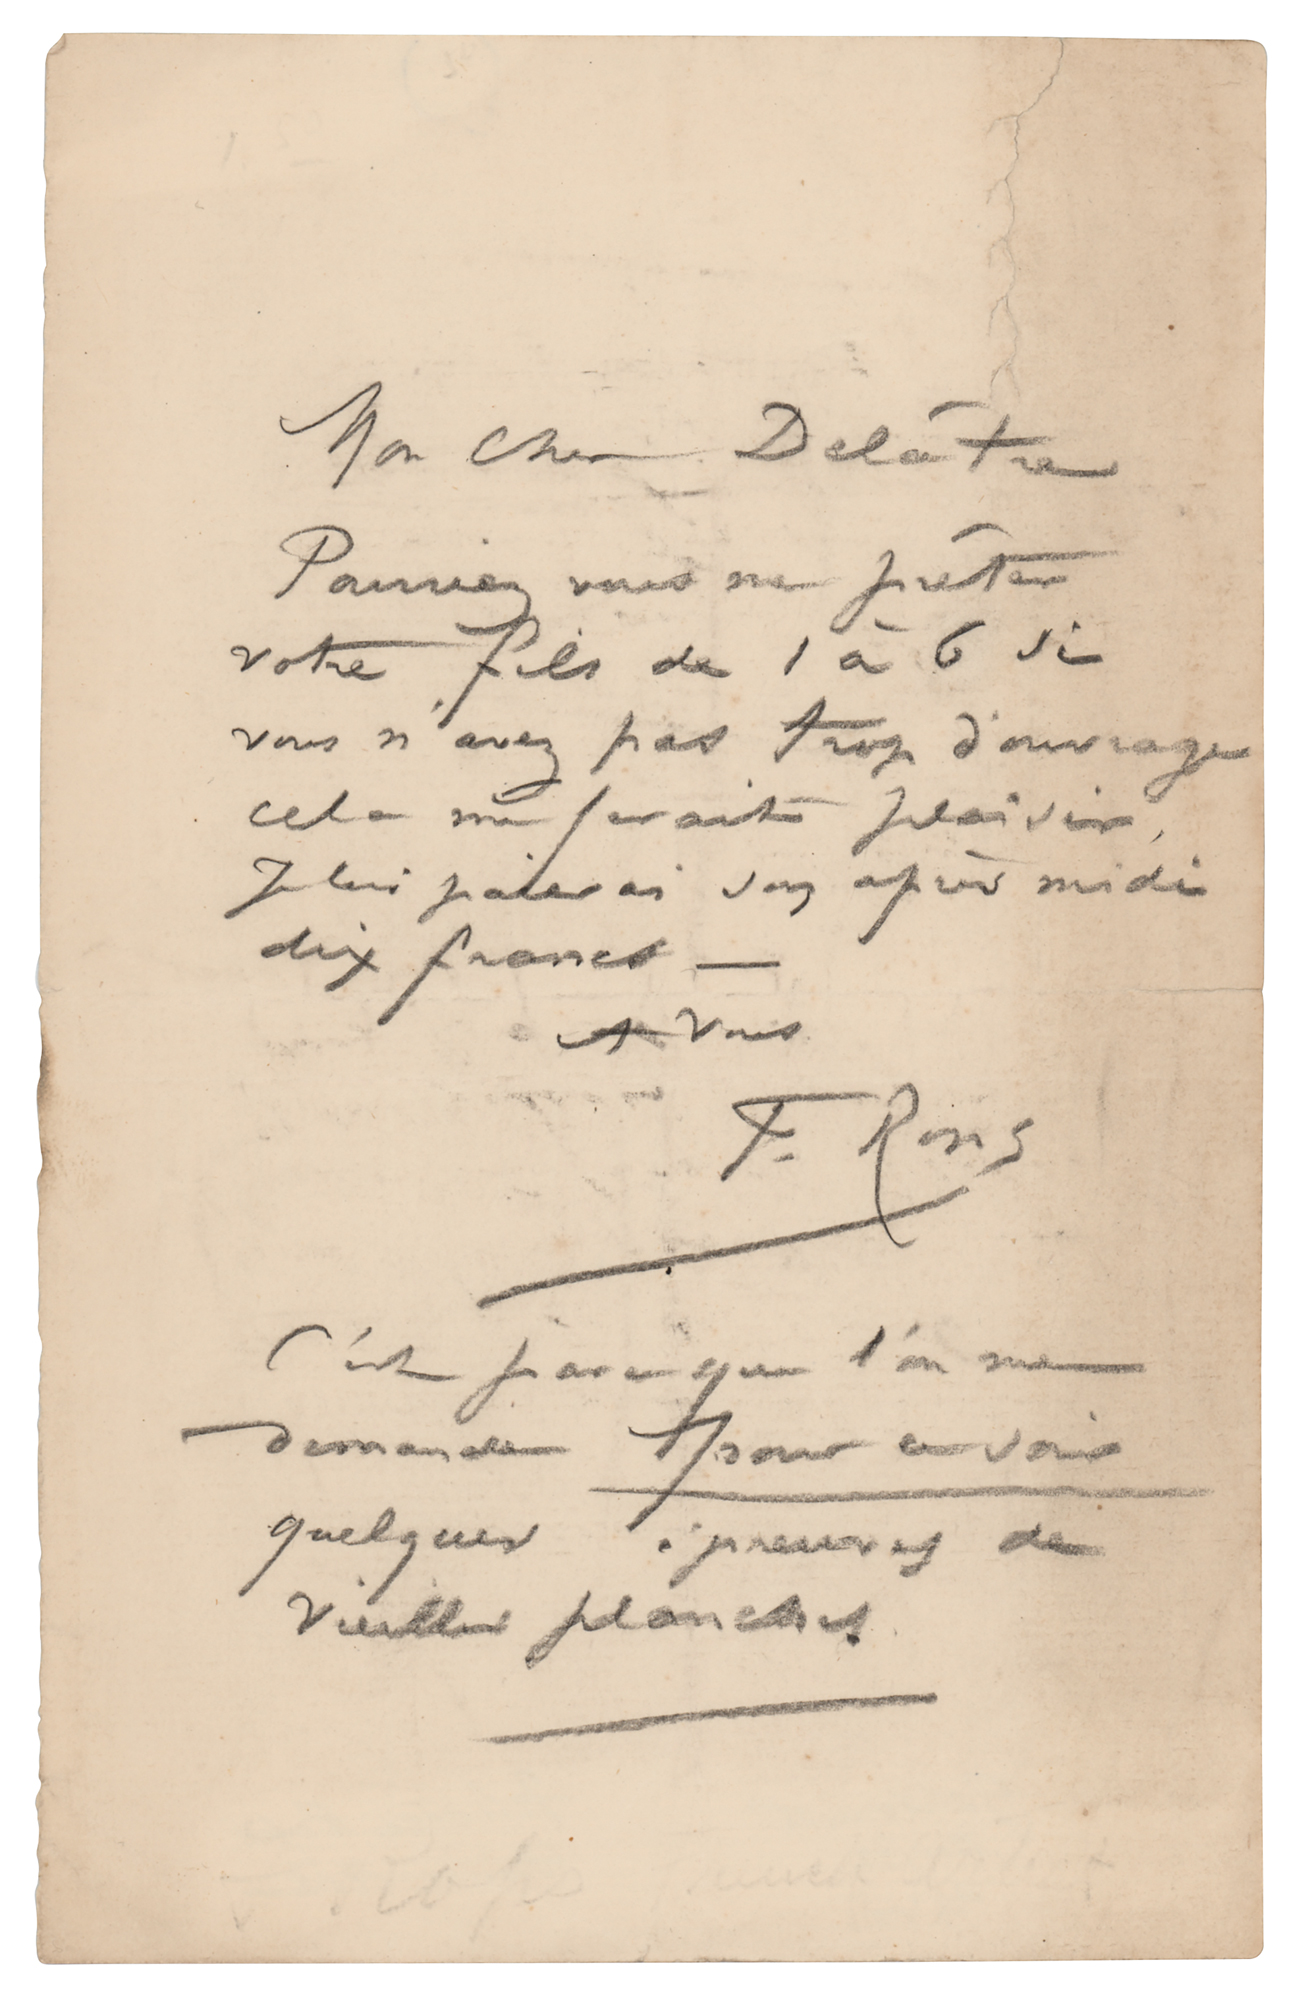 Mon cher Delâtre
Pourriez vous me prêter
votre fils de 1 à 6 si
vous n'avez pas trop d'ouvrage
cela me ferait plaisir,
Je lui paierai son après midi
dix francs —
A Vous
F. Rops
C'est parce que l'on me
demande pour ce soir
quelques épreuves de
vieilles planches.